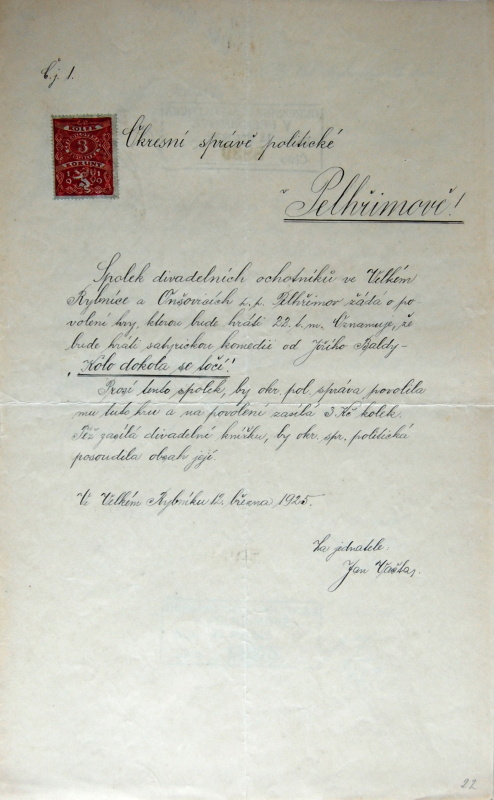 Č.j. 1.
KOLEK
3
KORUNY
1919
Okresní správě politické
v
Pelhřimově!
Spolek divadelních ochotníků ve Velkém
Rybníce a Onšovicích z. s. Pelhřimov žádá o po
volení hry, kterou bude hráti 22. t. m. Oznamuje, že
bude hráti satyrickou komedii od Jiřího Baldy-
"Kolo dokola se točí".
Prosí tento spolek, by okr. pol. správa povolila
mu tuto hru a na povolení zasílá 3 Kč kolek.
Též zasílá divadelní knížku, by okr. spr. politická
posoudila obsah její.
Ve Velkém Rybníku 12. března 1925.
Za jednatele
Jan
22